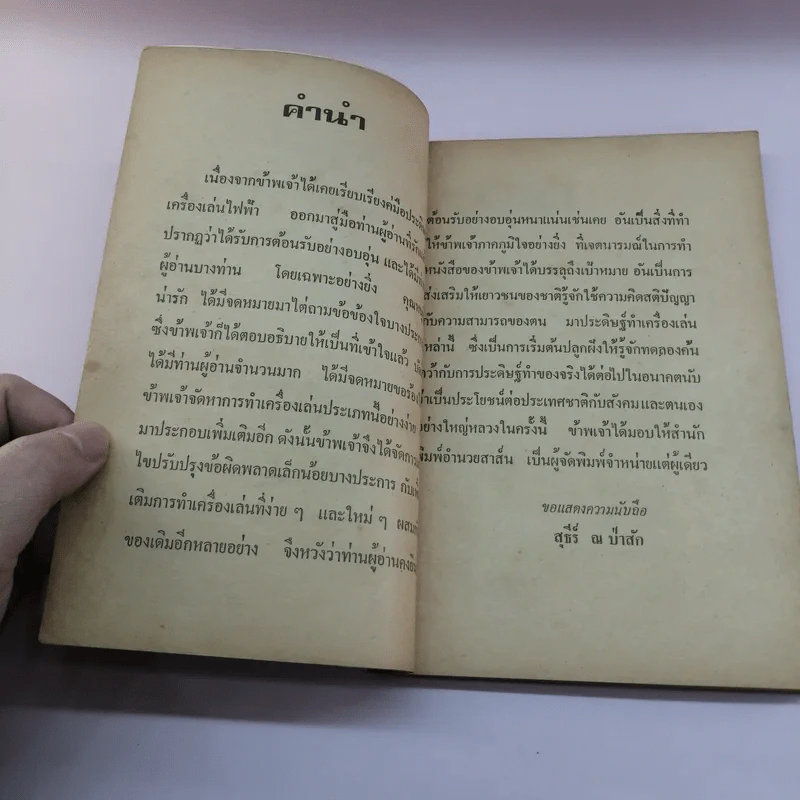 คำนำ
เนื่องจากข้าพเจ้าได้เคยเรียบเรียงคู่มือประดิษ
เครื่องเล่นไฟฟ้า ออกมาสู่มือท่านผู้อ่านที่รัก
ปรากฏว่าได้รับการต้อนรับอย่างอบอุ่น และได้มี
ผู้อ่านบางท่าน โดยเฉพาะอย่างยิ่ง
น่ารัก ได้มีจดหมายมาไต่ถามข้อข้องใจบางประ
ซึ่งข้าพเจ้าก็ได้ตอบอธิบายให้เป็นที่เข้าใจแล้ว
ได้มีท่านผู้อ่านจำนวนมาก ได้มีจดหมายขอร้อง
ข้าพเจ้าจัดหาการทำเครื่องเล่นประเภทนี้อย่างง่าย
มาประกอบเพิ่มเติมอีก ดังนั้นข้าพเจ้าจึงได้จัดการ
ไขปรับปรุงข้อผิดพลาดเล็กน้อยบางประการ กับเพิ่
เติมการทำเครื่องเล่นที่ง่าย ๆ และใหม่ ๆ ผสม
ของเดิมอีกหลายอย่าง จึงหวังว่าท่านผู้อ่านคง
ต้อนรับอย่างอบอุ่นหนาแน่นเช่นเคย อันเป็นสิ่งที่ทำ
ให้ข้าพเจ้าภาคภูมิใจอย่างยิ่ง ที่เจตนารมณ์ในการทำ
หนังสือของข้าพเจ้าได้บรรลุถึงเป้าหมาย อันเป็นการ
ส่งเสริมให้เยาวชนของชาติรู้จักใช้ความคิดสติปัญญา
กับความสามารถของตน มาประดิษฐ์ทำเครื่องเล่น
เหล่านี้ ซึ่งเป็นการเริ่มต้นปลูกฝังให้รู้จักทดลองค้น
คว้ากับการประดิษฐ์ทำของจริงได้ต่อไปในอนาคตนับ
ว่าเป็นประโยชน์ต่อประเทศชาติกับสังคมและตนเอง
อย่างใหญ่หลวงในครั้งนี้ ข้าพเจ้าได้มอบให้สำนัก
พิมพ์อำนวยสาส์น เป็นผู้จัดพิมพ์จำหน่ายแต่ผู้เดียว
ขอแสดงความนับถือ
สุธีร์ ณ ป่าสัก